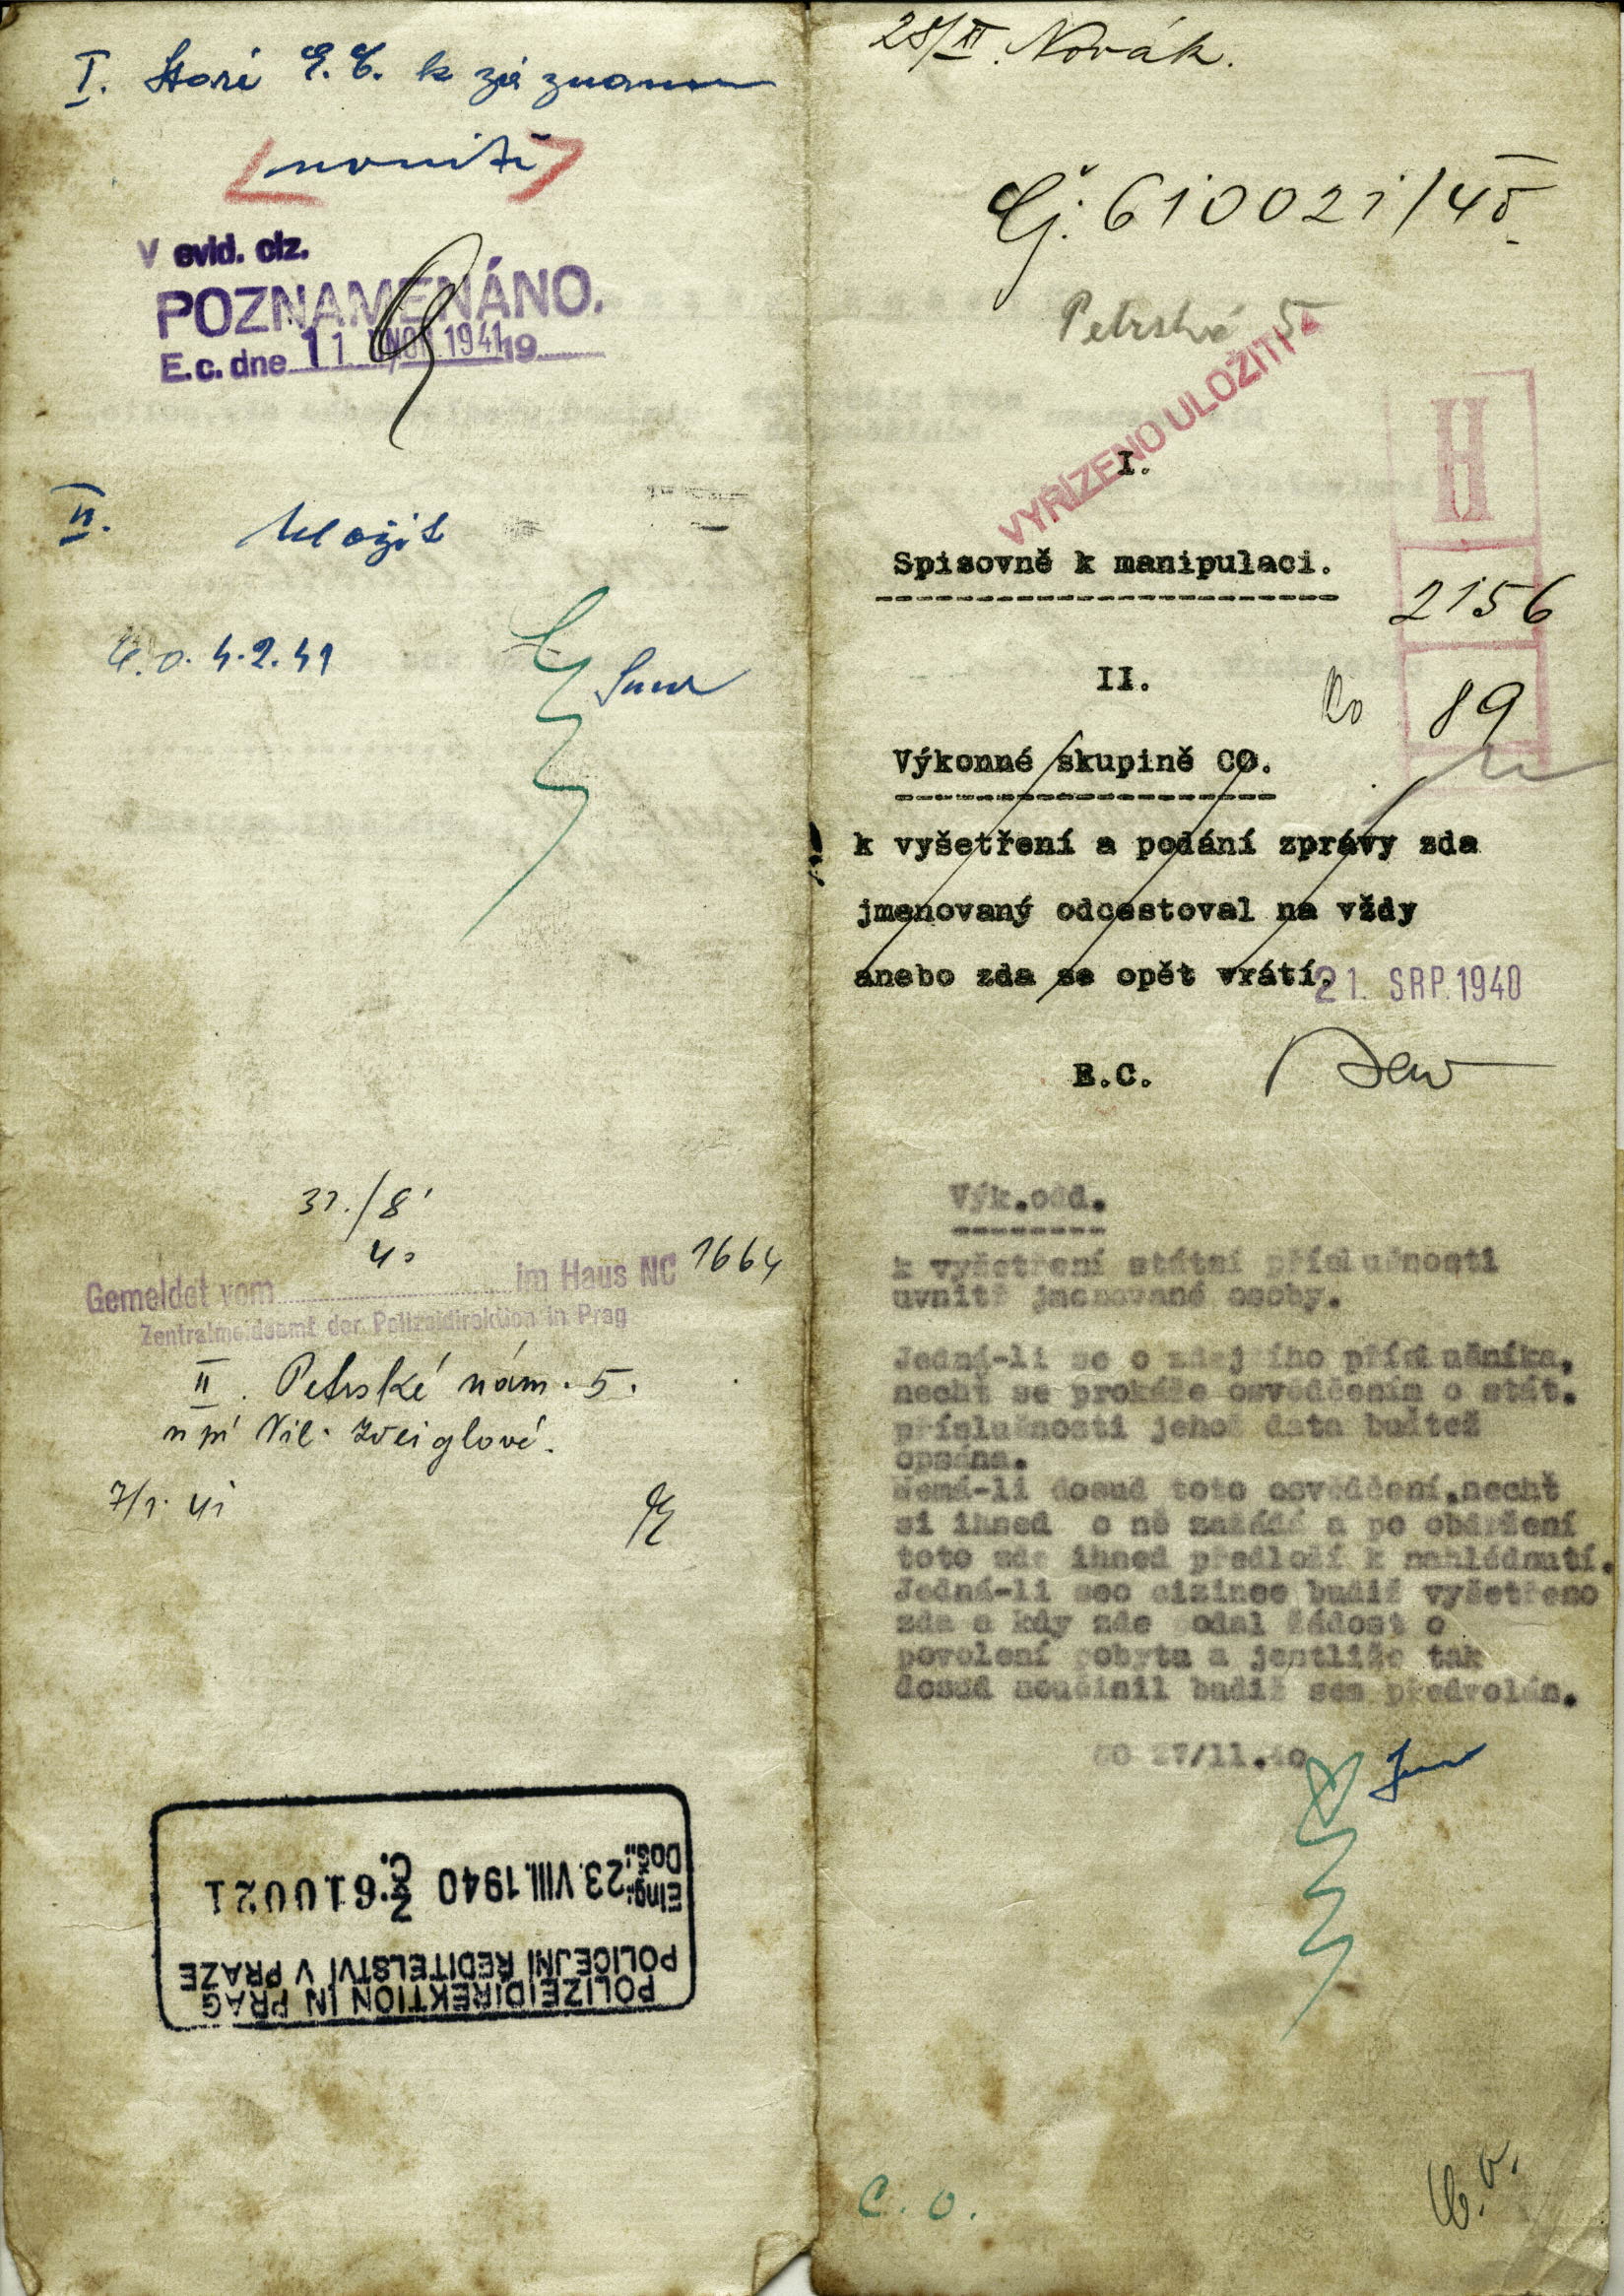 I. Staré E.C. k záznamu
uvnitř
V evid. ciz.
POZNAMENÁNO.
E.c. dne 11. ÚNOR 1941 19
II. Uložit
C.O. 4.2.41
31./8
40
Gemeldet vom im Haus NC 1664
Zentralmeldeamt der Polizeidirektion in Prag
II. Petrské nám. 5.
u pí Vil. Zweiglové.
7/1. 41
POLIZEIDIREKTION IN PRAG
POLICEJNÍ ŘEDITELSTVÍ V PRAZE
Eing.: Doš.: 23. VIII. 1940 Z. Č. 610021
28/XI. Novák.
Čj. 610021/40
Petrské 5
VYŘÍZENO ULOŽITI
H
I.
Spisovně k manipulaci.
2156
II.
89
Výkonné skupině CO.
k vyšetření a podání zprávy zda
jmenovaný odcestoval na vždy
anebo zda se opět vrátí.
21. SRP. 1940
E.C.
Výk.odd.
k vyšetření státní příslušnosti
uvnitř jmenované osoby.
Jedná-li se o zdejšího příslušníka,
nechť se prokáže osvědčením o stát.
příslušnosti jehož data buďtež
opsána.
Nemá-li dosud toto osvědčení,nechť
si ihned o ně zažádá a po obdržení
toto zde ihned předloží k nahlédnutí.
Jedná-li seo cizince budiž vyšetřeno
zda a kdy zde podal žádost o
povolení pobytu a jestliže tak
dosud neučinil budiž sem předvolán.
CO 27/11.40
C. O.